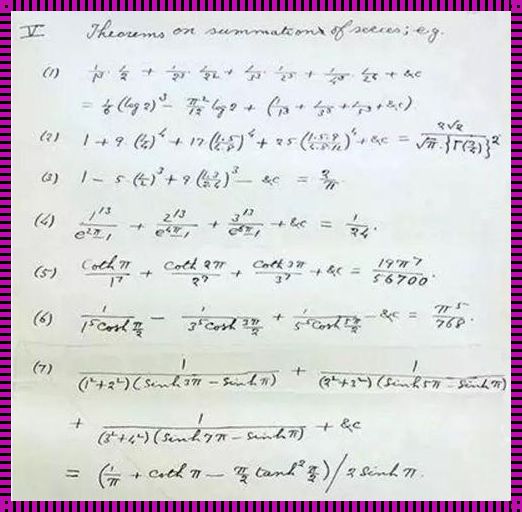 V Theorems on summations of series; e.g.
(1) 1/1³ · 1/2 + 1/2³ · 1/2² + 1/3³ · 1/2³ + 1/4³ · 1/2⁴ + &c
= 1/6 (log 2)³ − π²/12 log 2 + (1/1³ + 1/3³ + 1/5³ + &c).
(2) 1 + 9 (1/4)⁴ + 17 (1·5/4·8)⁴ + 25 (1·5·9/4·8·12)⁴ + &c = 2√2/√π · {Γ(3/4)}²
(3) 1 − 5 (1/2)³ + 9 (1·3/2·4)³ − &c = 2/π
(4) 1¹³/e^2π−1 + 2¹³/e^4π−1 + 3¹³/e^6π−1 + &c = 1/24.
(5) Coth π/1⁷ + Coth 2π/2⁷ + Coth 3π/3⁷ + &c = 19π⁷/56700.
(6) 1/1⁵ Cosh π/2 − 1/3⁵ Cosh 3π/2 + 1/5⁵ Cosh 5π/2 − &c = π⁵/768.
(7) 1/(1²+2²)(Sinh 3π − Sinh π) + 1/(2²+3²)(Sinh 5π − Sinh π)
+ 1/(3²+4²)(Sinh 7π − Sinh π) + &c
= (1/π + Coth π − π/2 tanh² π/2) / 2 Sinh π.